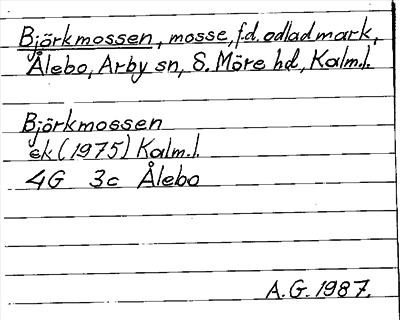 Björkmossen, mosse, f.d. odlad mark,
Ålebo, Arby sn, S. Möre hd, Kalm.l.
Björkmossen
ek (1975) Kalm.l.
4G 3c Ålebo
A.G. 1987.